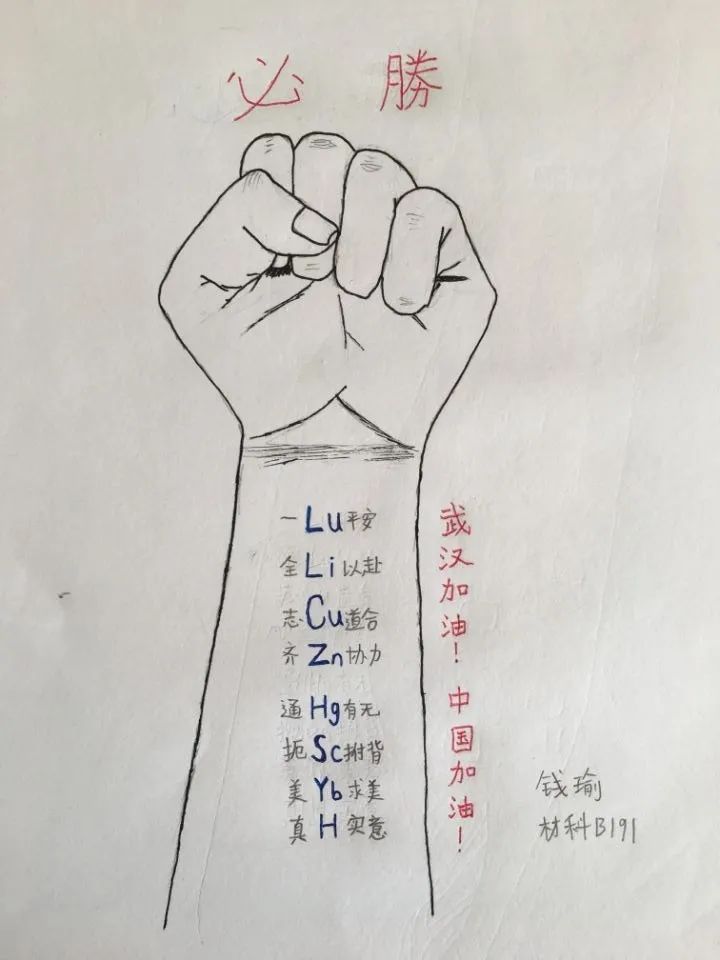 必 勝
一Lu平安
全Li以赴
志Cu道合
齐Zn协力
通Hg有无
扼Sc拊背
美Yb求美
真H实意
武汉加油！中国加油！
钱瑜
材科B191